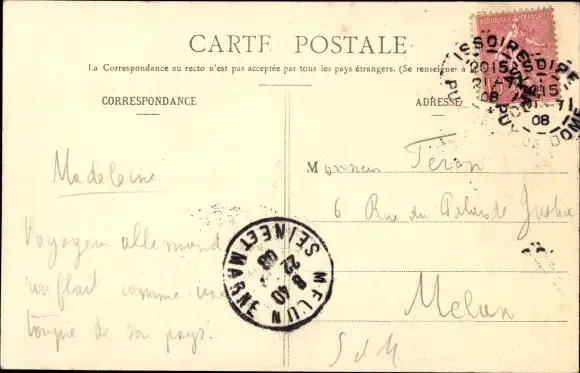 CARTE POSTALE
La Correspondance au recto n'est pas acceptée par tous les pays étrangers. (Se renseigner à
CORRESPONDANCE
ADRESSE
REPUBLIQUE FRANÇAISE
ISSOIRE
PUY-DE-DOME
2015
08
ISSOIRE
PUY-DE-DOME
08
Madeleine
Voyageur allemand
ronflait comme une
de son pays.
Monsieur
6 Rue du Palais de Justice
Melun
S et M
MELUN
SEINE ET MARNE
8 40
22
08